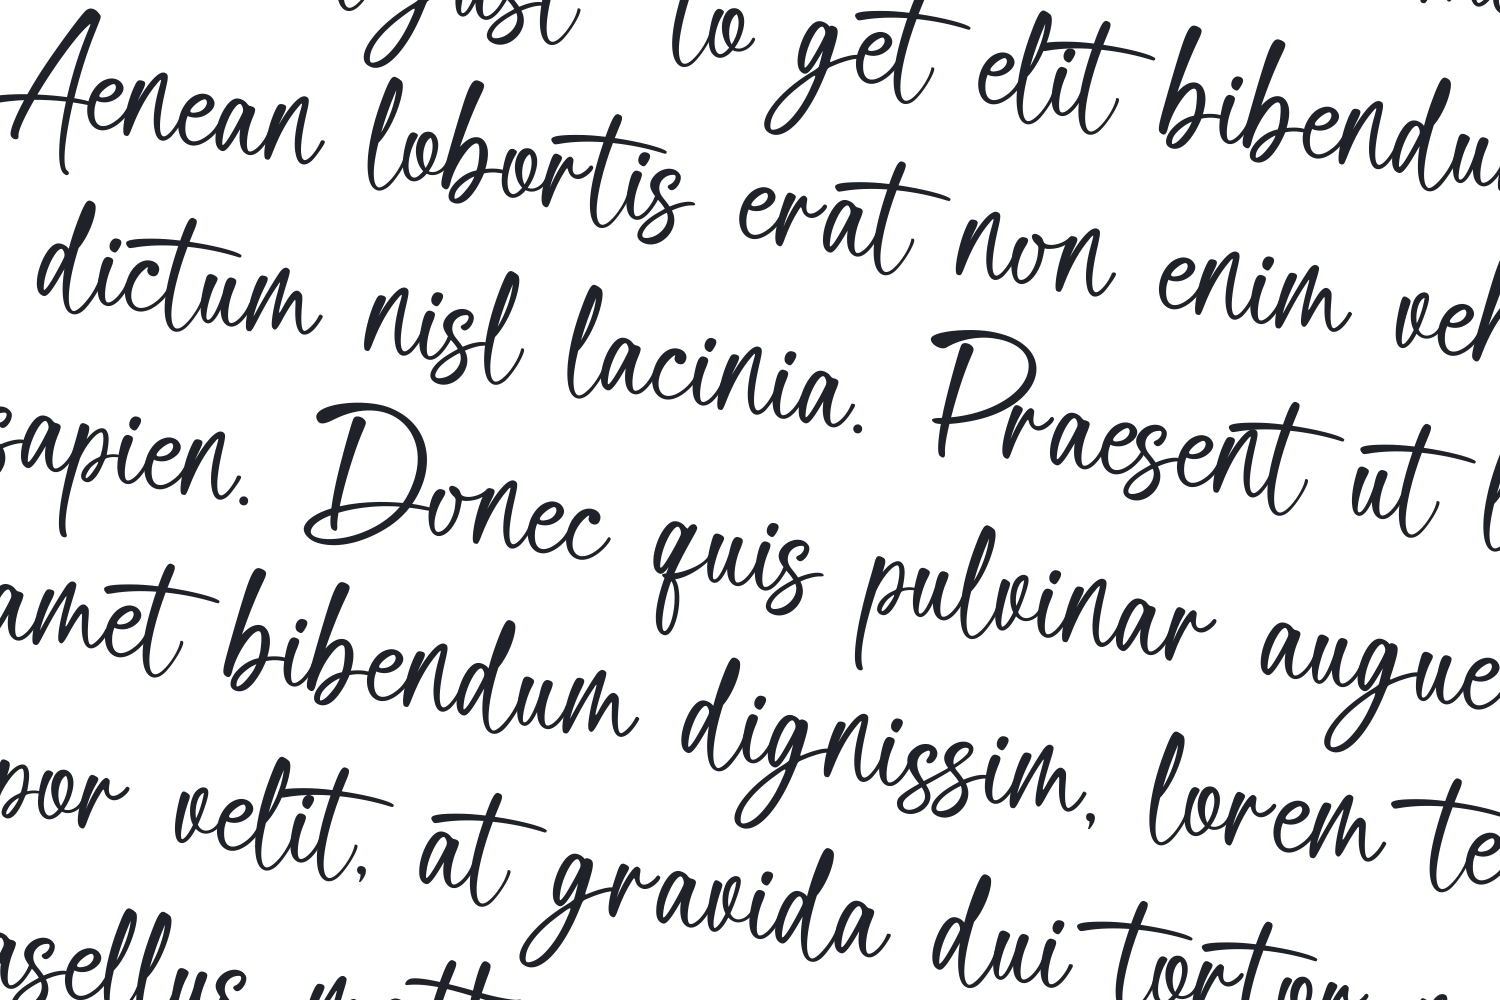 to get elit
Aenean lobortis erat non enim
dictum nisl lacinia. Praesent ut
sapien. Donec quis pulvinar augue
amet bibendum dignissim, lorem
velit, at gravida dui